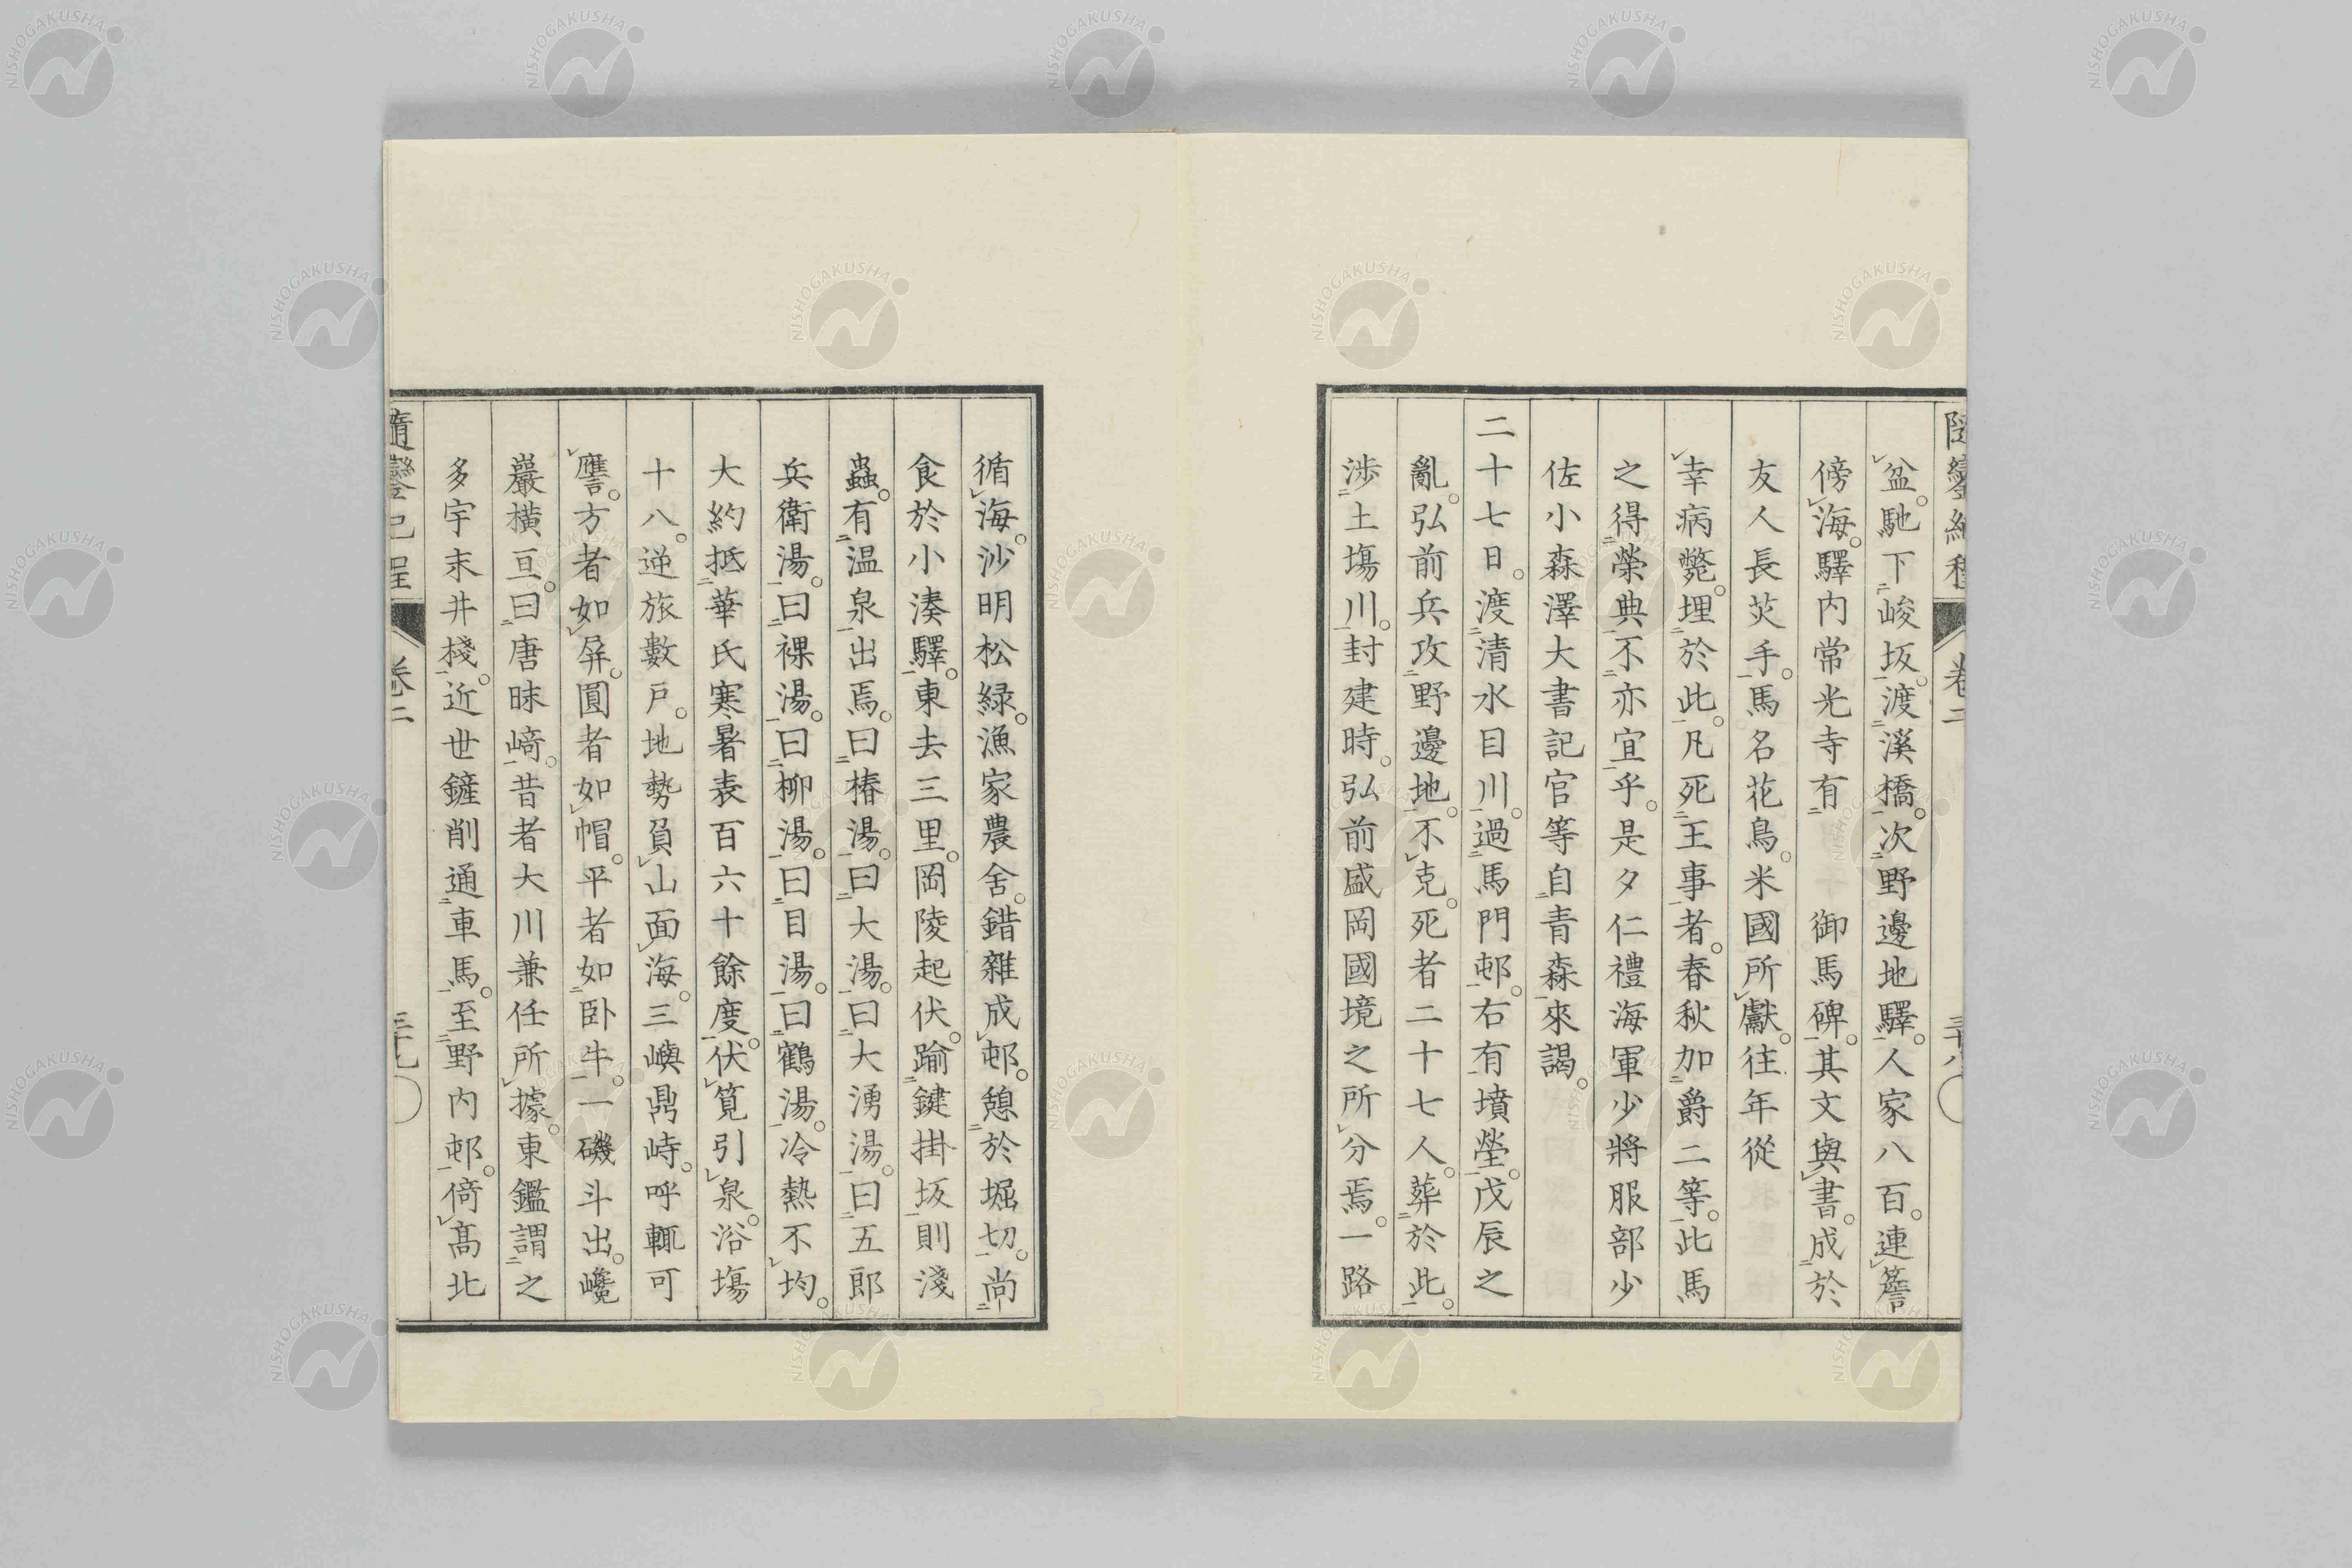 隨鑾紀程 卷二 三十八
盆。馳下峻坂。渡溪橋。次野邊地驛。人家八百。連簷
傍海。驛内常光寺有 御馬碑。其文與書。成於
友人長炗手。馬名花鳥。米國所獻。往年從
幸病斃。埋於此。凡死王事者。春秋加爵二等。此馬
之得榮典。不亦宜乎。是夕仁禮海軍少將服部少
佐小森澤大書記官等自青森來謁。
二十七日。渡清水目川。過馬門邨。右有墳塋。戊辰之
亂。弘前兵攻野邊地。不克。死者二十七人。葬於此。
涉土場川。封建時。弘前盛岡國境之所分焉。一路
循海。沙明松緑。漁家農舍。錯雜成邨。憩於堀切。尚
食於小湊驛。東去三里。岡陵起伏。踰鍵掛坂則淺
蟲。有温泉出焉。曰椿湯。曰大湯。曰大湧湯。曰五郎
兵衛湯。曰裸湯。曰柳湯。曰目湯。曰鶴湯。冷熱不均。
大約抵華氏寒暑表百六十餘度。伏筧引泉。浴場
十八。逆旅數戸。地勢負山面海。三嶼鼎峙。呼輒可
譍。方者如屏。圓者如帽。平者如臥牛。一磯斗出。巉
巖横亘。曰唐昧﨑。昔者大川兼任所據。東鑑謂之
多宇末井棧。近世鏟削通車馬。至野内邨。倚髙北
隨鑾紀程 卷二 三十九